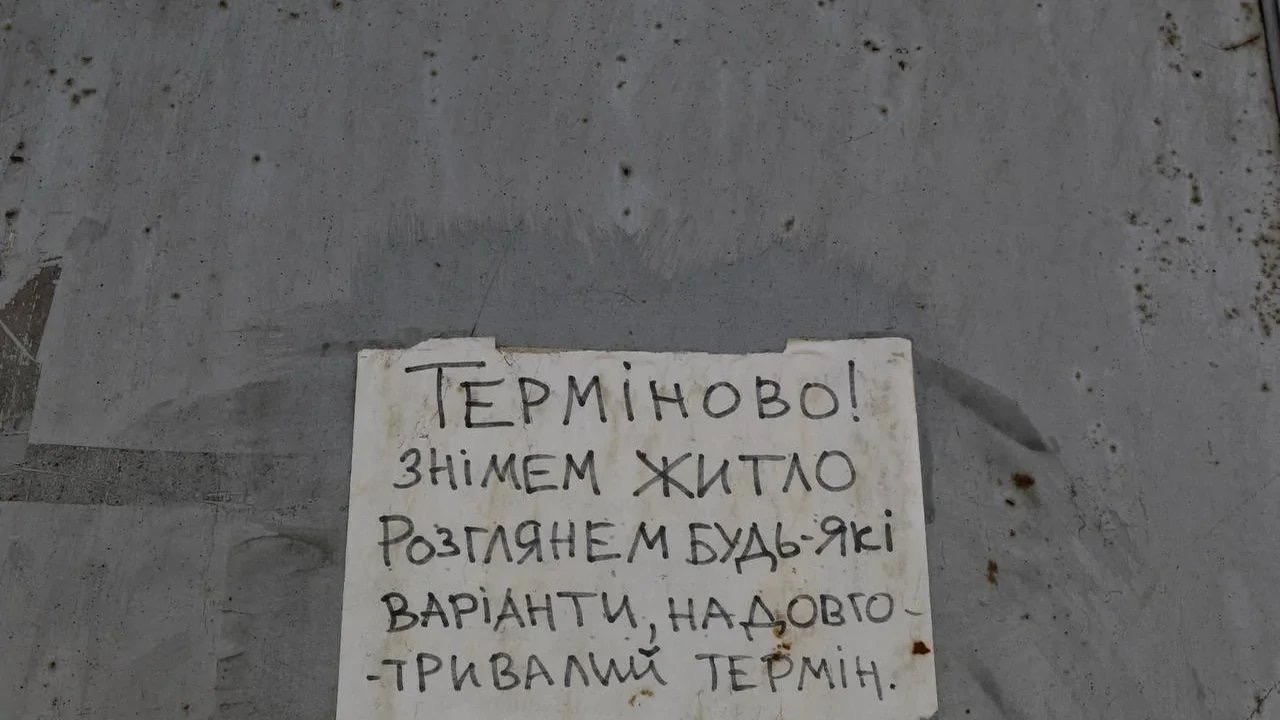 ТЕРМІНОВО!
ЗНІМЕМ ЖИТЛО
РОЗГЛЯНЕМ БУДЬ-ЯКІ
ВАРІАНТИ, НА ДОВГО-
-ТРИВАЛИЙ ТЕРМІН.